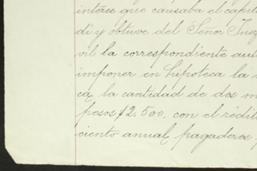 intáse que causaba el capit
di y obtuve del Señor Juez
vil la correspondiente aut
imponer en hipoteca la
ca, la cantidad de dos m
pesos $2,500, con el rédit
ciento anual, pagaderos